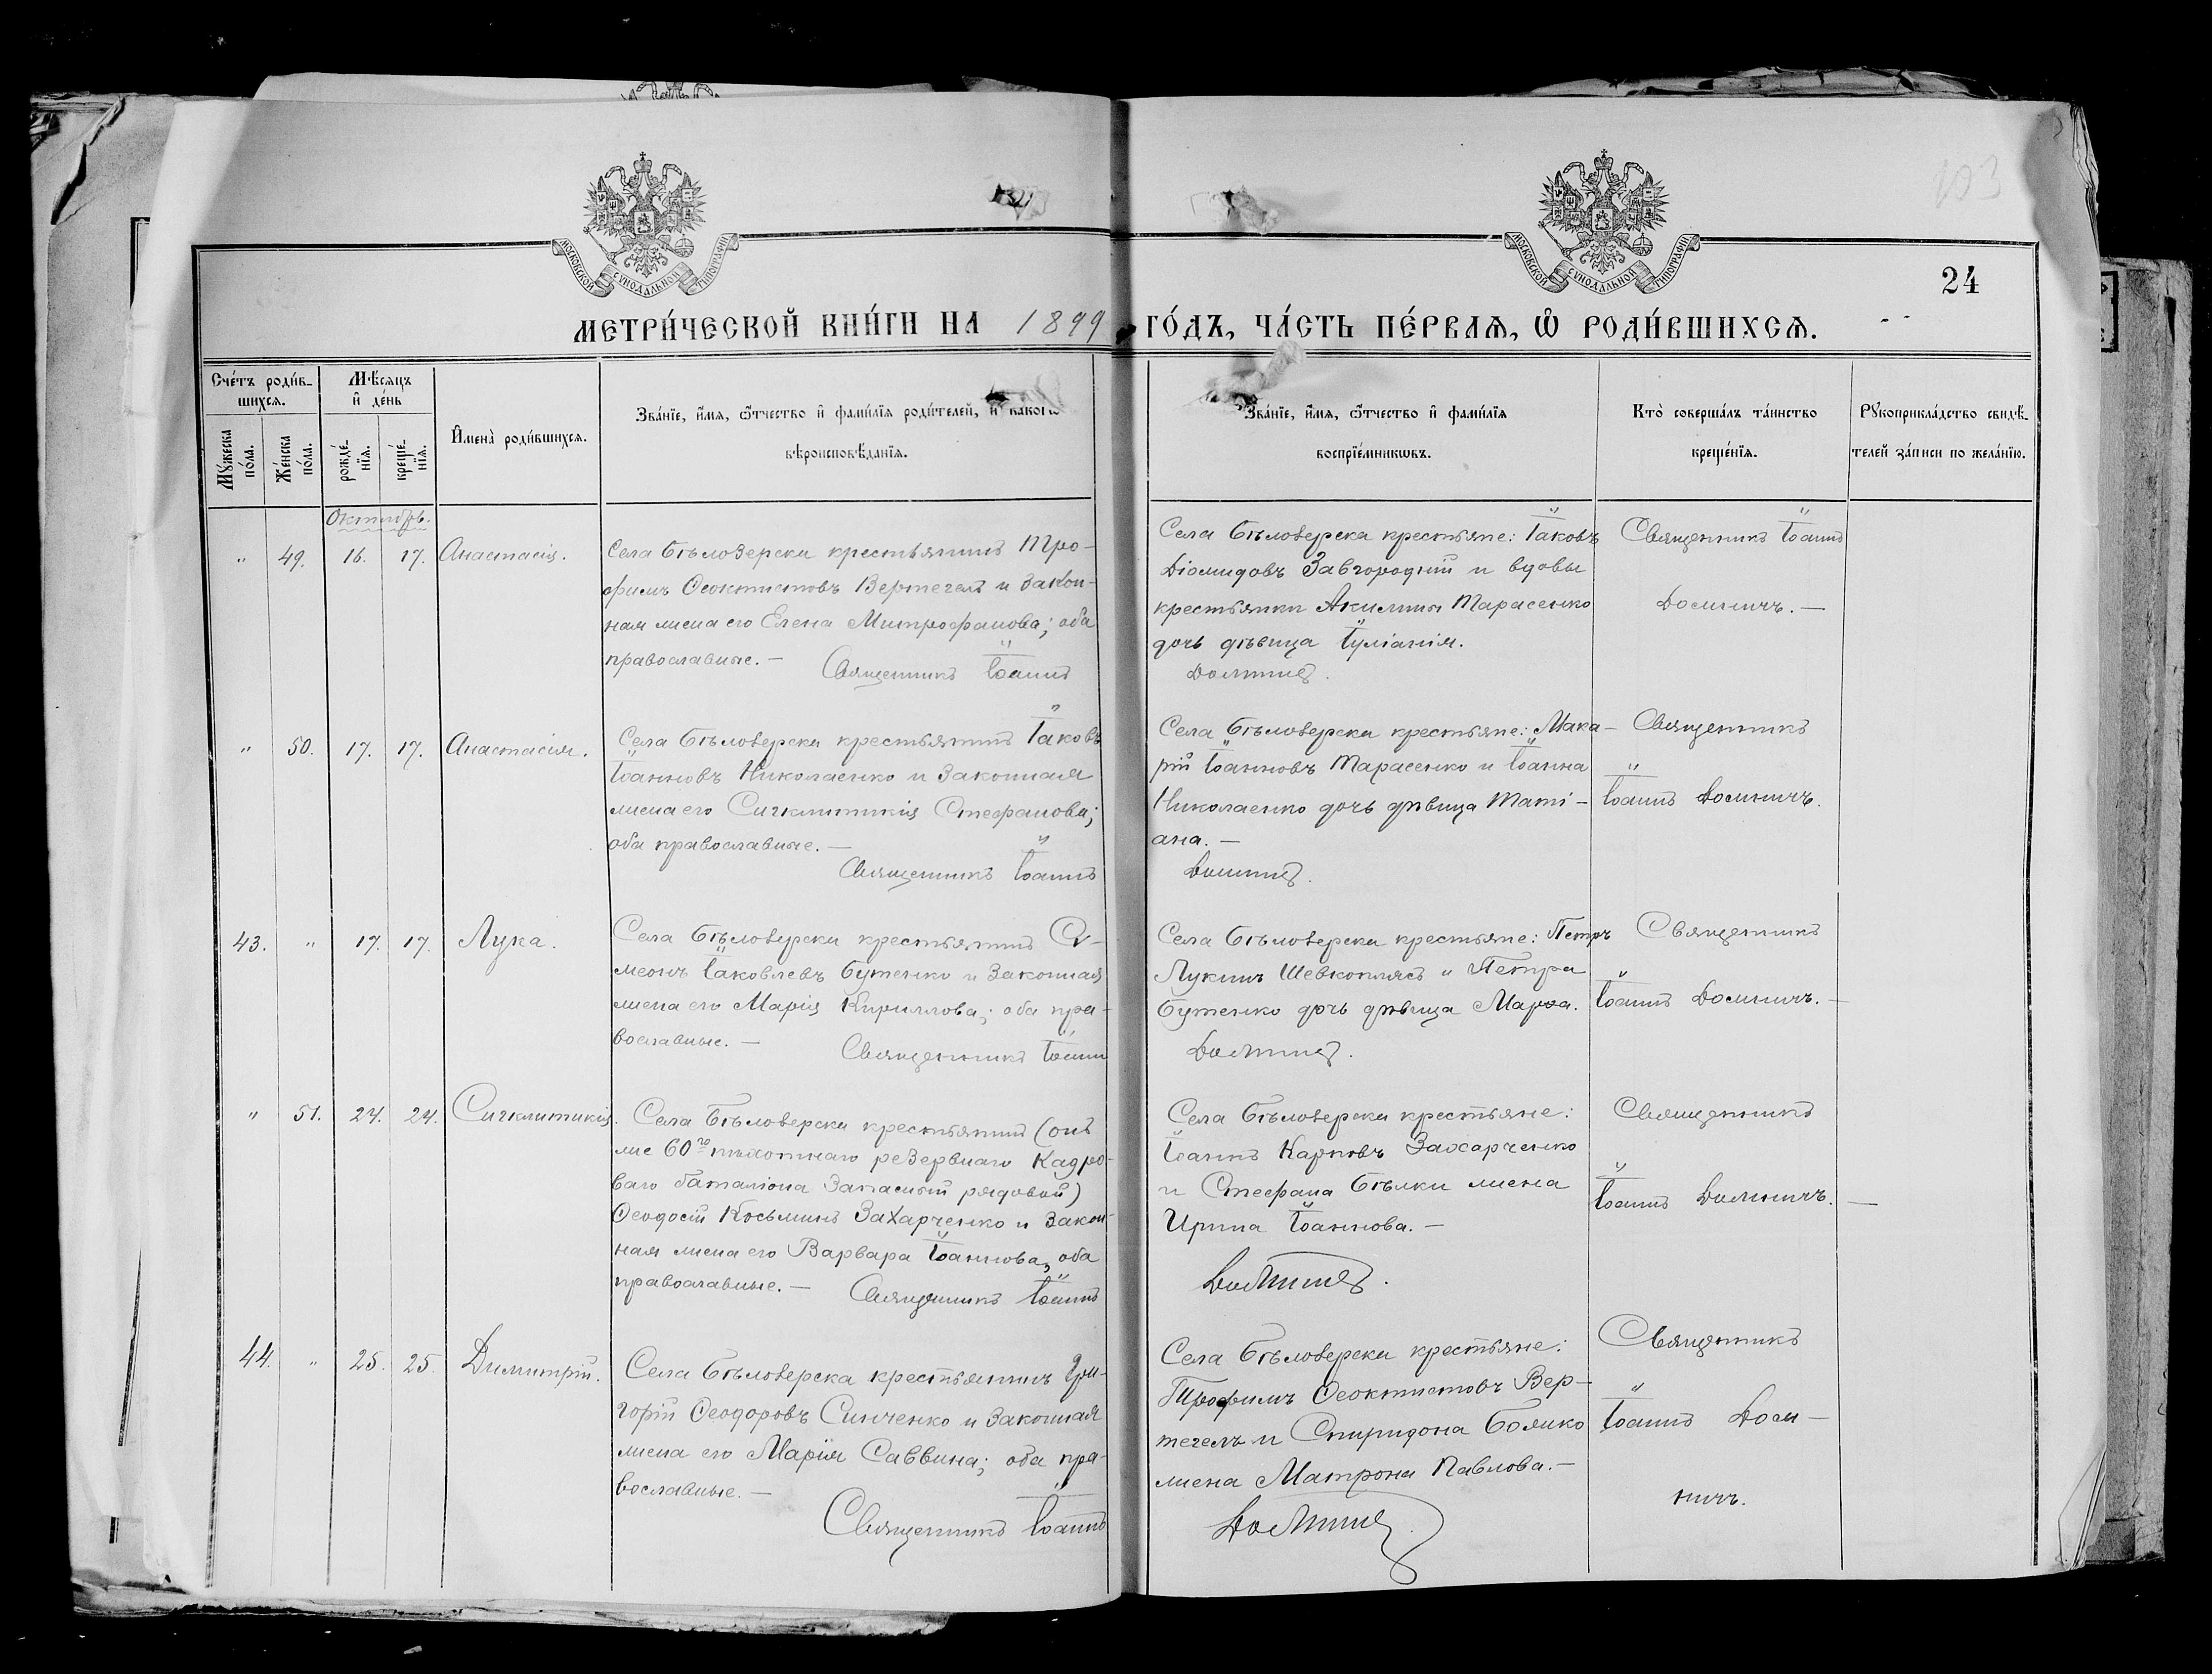 МОСКОВСКОЙ СѴНОДАЛЬНОЙ ТИПОГРАФІИ
МОСКОВСКОЙ СѴНОДАЛЬНОЙ ТИПОГРАФІИ
103
24
МЕТРИ́ЧЕСКОЙ КНИ́ГИ НА 1899 ГО́ДЪ, ЧА́СТЬ ПЕ́РВАѦ, Ѽ РОДИ́ВШИХСѦ.
Сче́тъ роди́в-
шихсѧ.
Мꙋ́жеска по́ла.
Же́нска по́ла.
Мѣ́сѧцъ
и҆ де́нь
рожде́-нїѧ.
креще́-нїѧ.
И҆мена̀ роди́вшихсѧ.
Зва́нїе, и҆́мѧ, ѻ҆́тчество и҆ фами́лїѧ роди́телей, и҆ како́гѡ
вѣроисповѣ́данїѧ.
Зва́нїе, и҆́мѧ, ѻ҆́тчество и҆ фами́лїѧ
воспрїе́мникѡвъ.
Кто̀ соверша́лъ та́инство
креще́нїѧ.
Рꙋкоприкла́дство свидѣ́-
телей за́писи по жела́нїю.
Октябрь.
" 49. 16. 17. Анастасія.
Села Бѣлозерска крестьянинъ Тро-
фимъ Ѳеоктистовъ Вертегелъ и закон-
ная жена его Елена Митрофанова; оба
православные. —
Священникъ Іоаннъ
Села Бѣлозерска крестьяне: Іаковъ
Діомидовъ Завгородній и вдовы
крестьянки Акилины Тарасенко
дочь дѣвица Іуліанія.
Доминичъ.
Священникъ Іоаннъ
Доминичъ. —
" 50. 17. 17. Анастасія.
Села Бѣлозерска крестьянинъ Іаковъ
Іоанновъ Николаенко и законная
жена его Сигклитикія Стефанова;
оба православные. —
Священникъ Іоаннъ
Села Бѣлозерска крестьяне: Мака-
рій Іоанновъ Тарасенко и Іоанна
Николаенко дочь дѣвица Таті-
ана. —
Доминичъ.
Священникъ
Іоаннъ Доминичъ.
43. " 17. 17. Лука.
Села Бѣлозерска крестьянинъ Сѵ-
меонъ Іаковлевъ Бутенко и законная
жена его Марія Кириллова; оба пра-
вославные. —
Священникъ Іоаннъ
Села Бѣлозерска крестьяне: Петръ
Лукинъ Шевкоплясъ и Петра
Бутенко дочь дѣвица Марѳа.
Доминичъ.
Священникъ
Іоаннъ Доминичъ. —
" 51. 24. 24. Сигклитикія.
Села Бѣлозерска крестьянинъ (онъ
же 60го пѣхотнаго резервнаго кадро-
ваго баталіона запасный рядовой)
Ѳеодосій Косьминъ Захарченко и закон-
ная жена его Варвара Іоаннова, оба
православные. —
Священникъ Іоаннъ
Села Бѣлозерска крестьяне:
Іоаннъ Карповъ Захарченко
и Стефана Бѣлки жена
Ирина Іоаннова. —
Доминичъ.
Священникъ
Іоаннъ Доминичъ. —
44. " 25. 25. Димитрій.
Села Бѣлозерска крестьянинъ Гри-
горій Ѳеодоровъ Синченко и законная
жена его Марія Саввина; оба пра-
вославные. —
Священникъ Іоаннъ
Села Бѣлозерска крестьяне:
Трофимъ Ѳеоктистовъ Вер-
тегелъ и Спиридона Бояжко
жена Матрона Павлова. —
Доминичъ
Священникъ
Іоаннъ Доми-
ничъ.